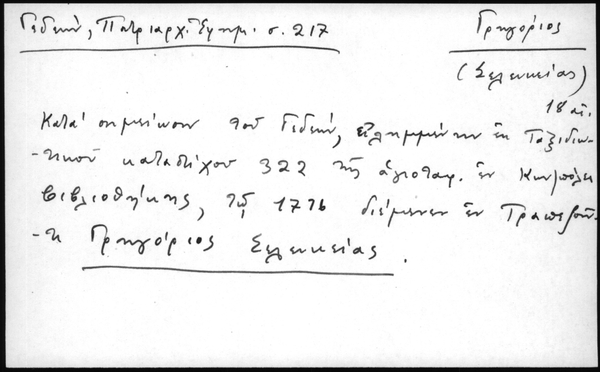 Γεδεών, Πατριαρχ. Ἐφημ. σ. 217
Γρηγόριος
(Σελευκείας)
18 αἰ.
Κατά σημείωσιν τοῦ Γεδεών, εἰλημμένην ἐκ Ταξιδιω-
-τικοῦ καταστίχου 322 τῆς ἁγιοταφ. ἐν Κων/πόλει
βιβλιοθήκης, τῷ 1776 διέμενεν ἐν Τραπεζοῦν-
-τι Γρηγόριος Σελευκείας.